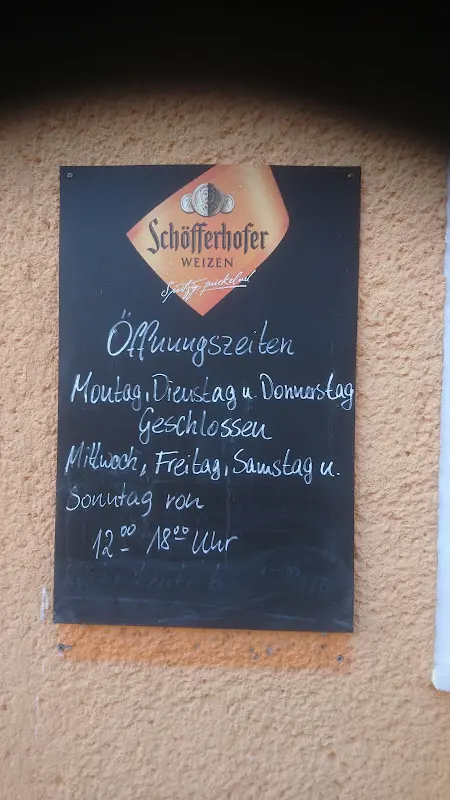 Schöfferhofer
WEIZEN
Öffnungszeiten
Montag, Dienstag u. Donnerstag
Geschlossen
Mittwoch, Freitag, Samstag u.
Sonntag von
12⁰⁰ 18⁰⁰ Uhr